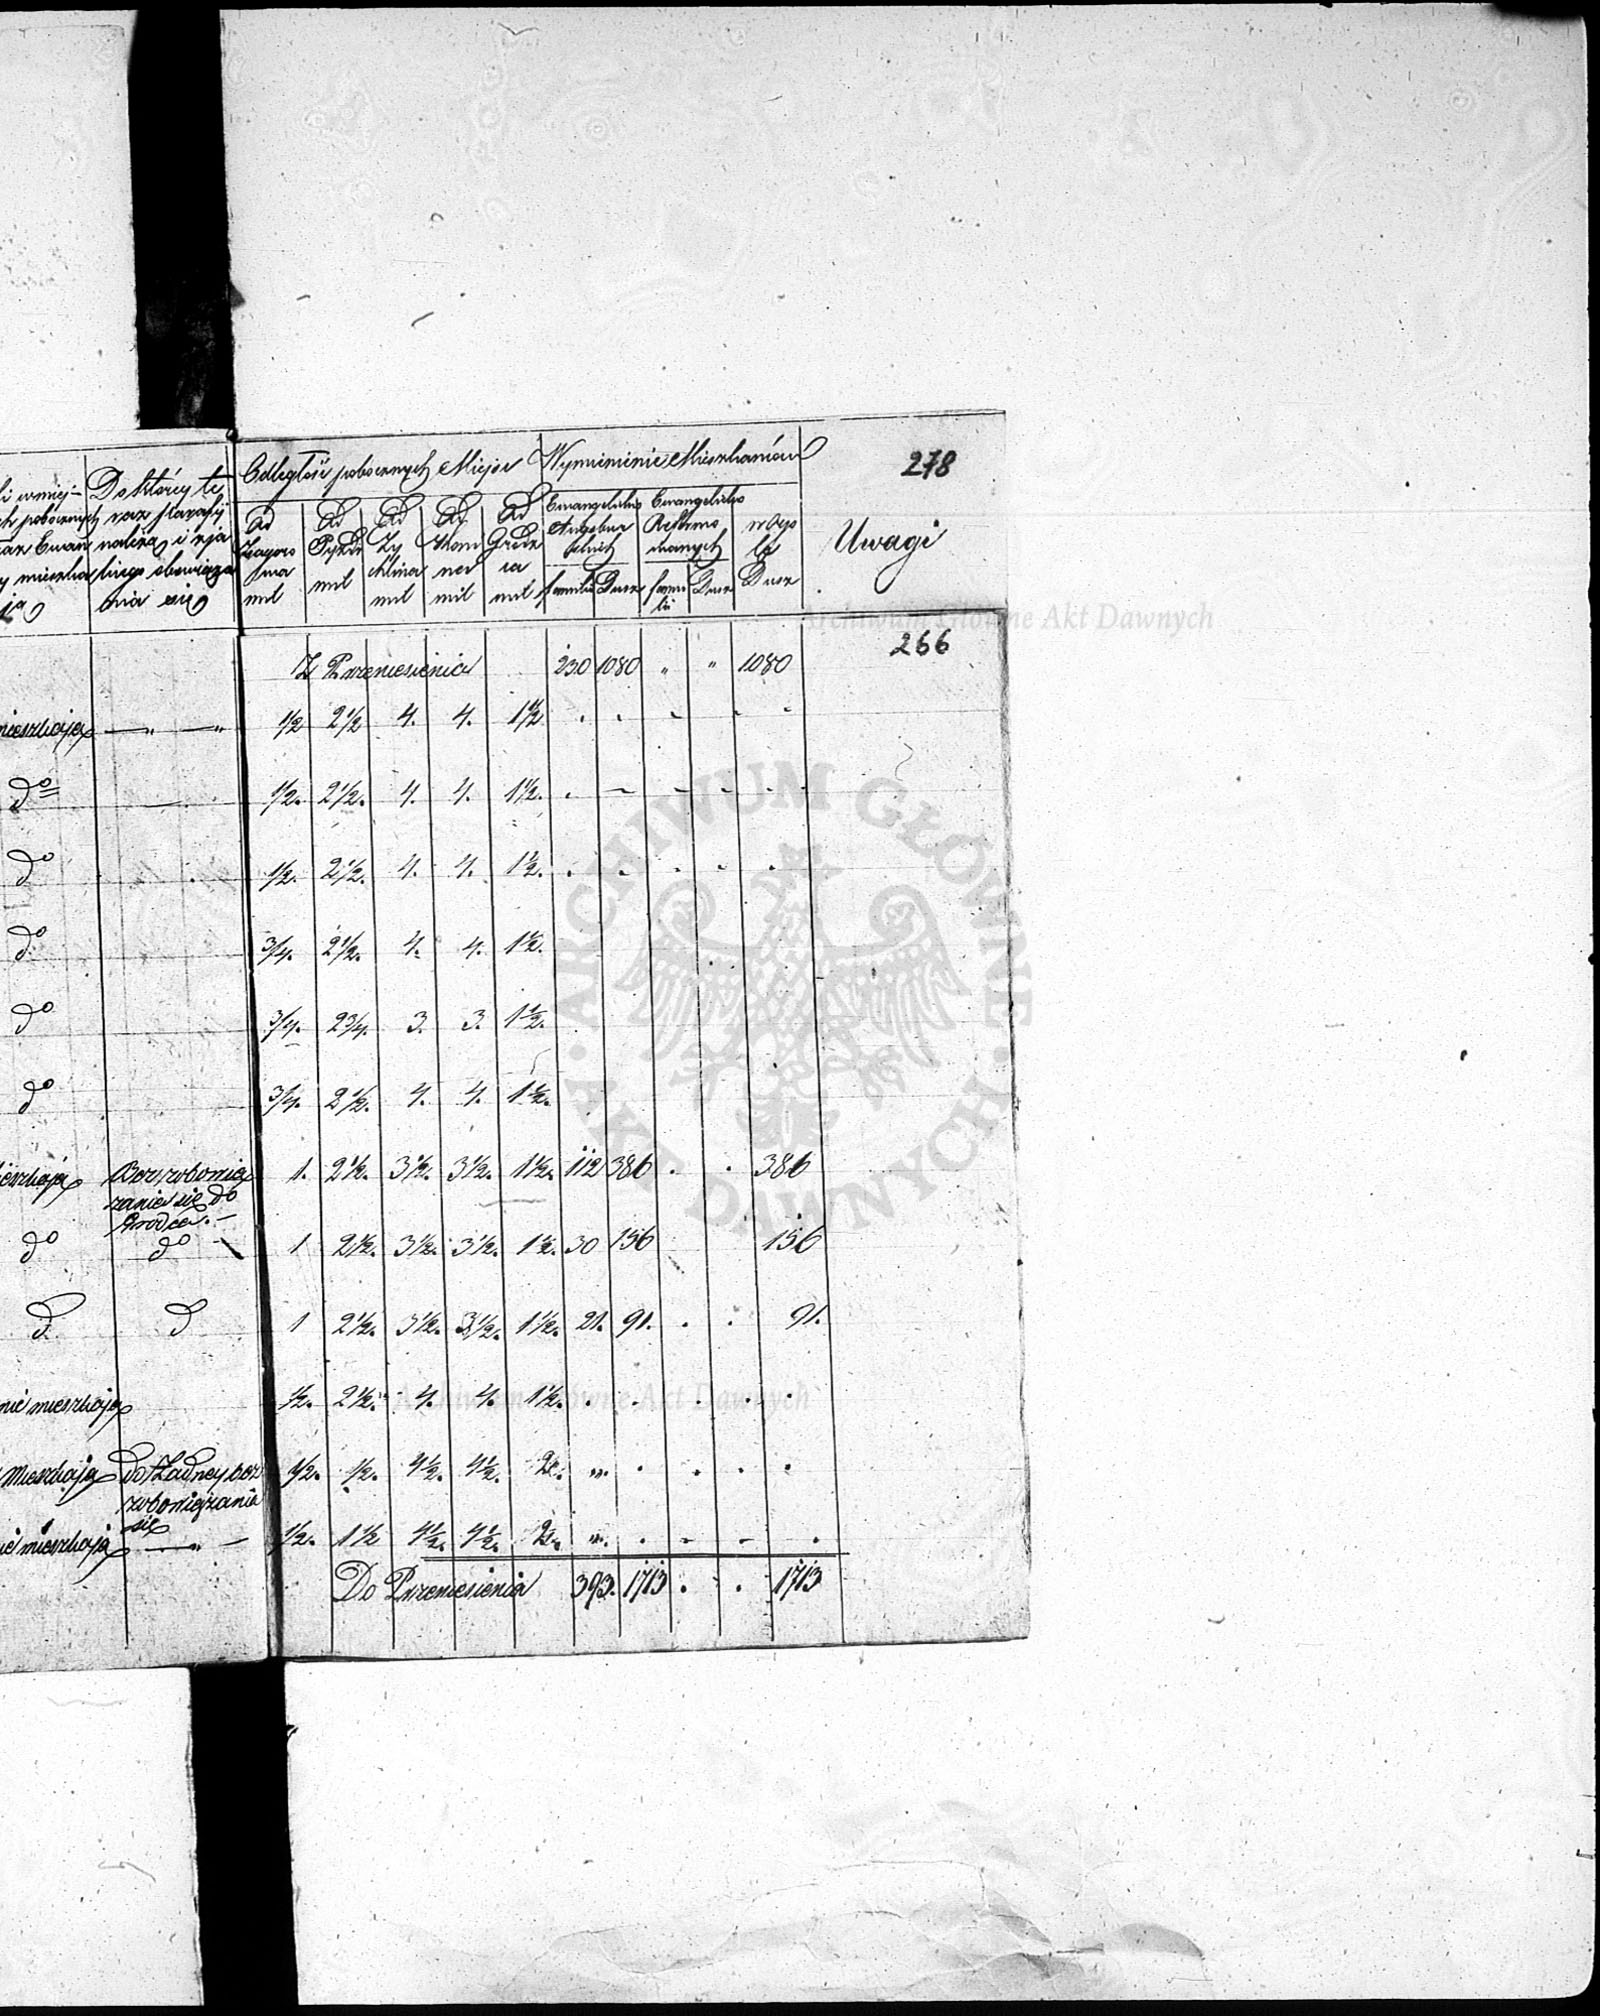 278
Odległość pobocznych Miejsc Wymienienie Mieszkańców
Do którey te
raz Parafij
należą i z ja
kiego obowiąza
nia się
Od
mil
Od
Pyzdr
mil
Od
Zy
chlina
mil
Od
mil
Od
Grodz
ca
mil
Ewangelicko
Augsbur
skich
familii Dusz
Ewangelicko
Reformo
wanych
fami
lii Dusz
w ogo
le
Dusz
Uwagi
Archiwum Główne Akt Dawnych
266
Z Przeniesienia 230 1080 " " 1080
mieszkają —„ —„ 1/2 2 1/2 4. 4. 1 1/2 . . - - -
do 1/2. 2 1/2. 4. 4. 1 1/2. . - - - .
do 1/2. 2 1/2. 4. 4. 1 1/2. . . . . .
do 3/4. 2 1/2. 4. 4. 1 1/2.
do 3/4. 2 3/4. 3. 3. 1 1/2.
do 3/4. 2 1/2. 4. 4. 1 1/2.
mieszkają Bez zobowią 1. 2 1/2. 3 1/2. 3 1/2. 1 1/2. 112 386 . . 386
zania się do
Grodca. —
do do 1 2 1/2. 3 1/2. 3 1/2. 1 1/2. 30 156 156
d d 1 2 1/2. 3 1/2. 3 1/2. 1 1/2. 21. 91. . . 91.
nie mieszkają 1/2. 2 1/2. 4. 4. 1 1/2. . . . . .
Archiwum Główne Akt Dawnych
Mieszkają do żadney bez 1/2. 1/2. 4 1/2. 4 1/2. 2. „. . . . .
zobowiązania
się
nie mieszkają —„ — 1/2. 1 1/2 4 1/2. 4 1/2. 2. „. . - - .
Do Przeniesienia 393. 1713 . . 1713
ARCHIWUM GŁÓWNE · AKT DAWNYCH ·